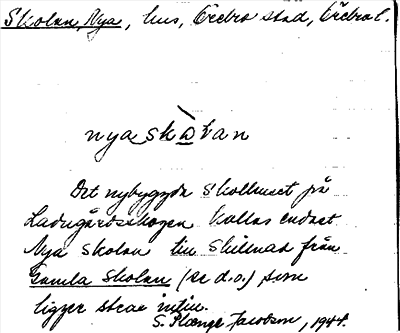 Skolan, Nya, hus, Örebro stad, Örebro l.
nya skòlan
Det nybyggda skolhuset på
Ladugårdsskogen kallas endast
Nya skolan till skillnad från
Gamla Skolan (se d.o.) som
ligger strax intill.
S. Jacobson, 1944.